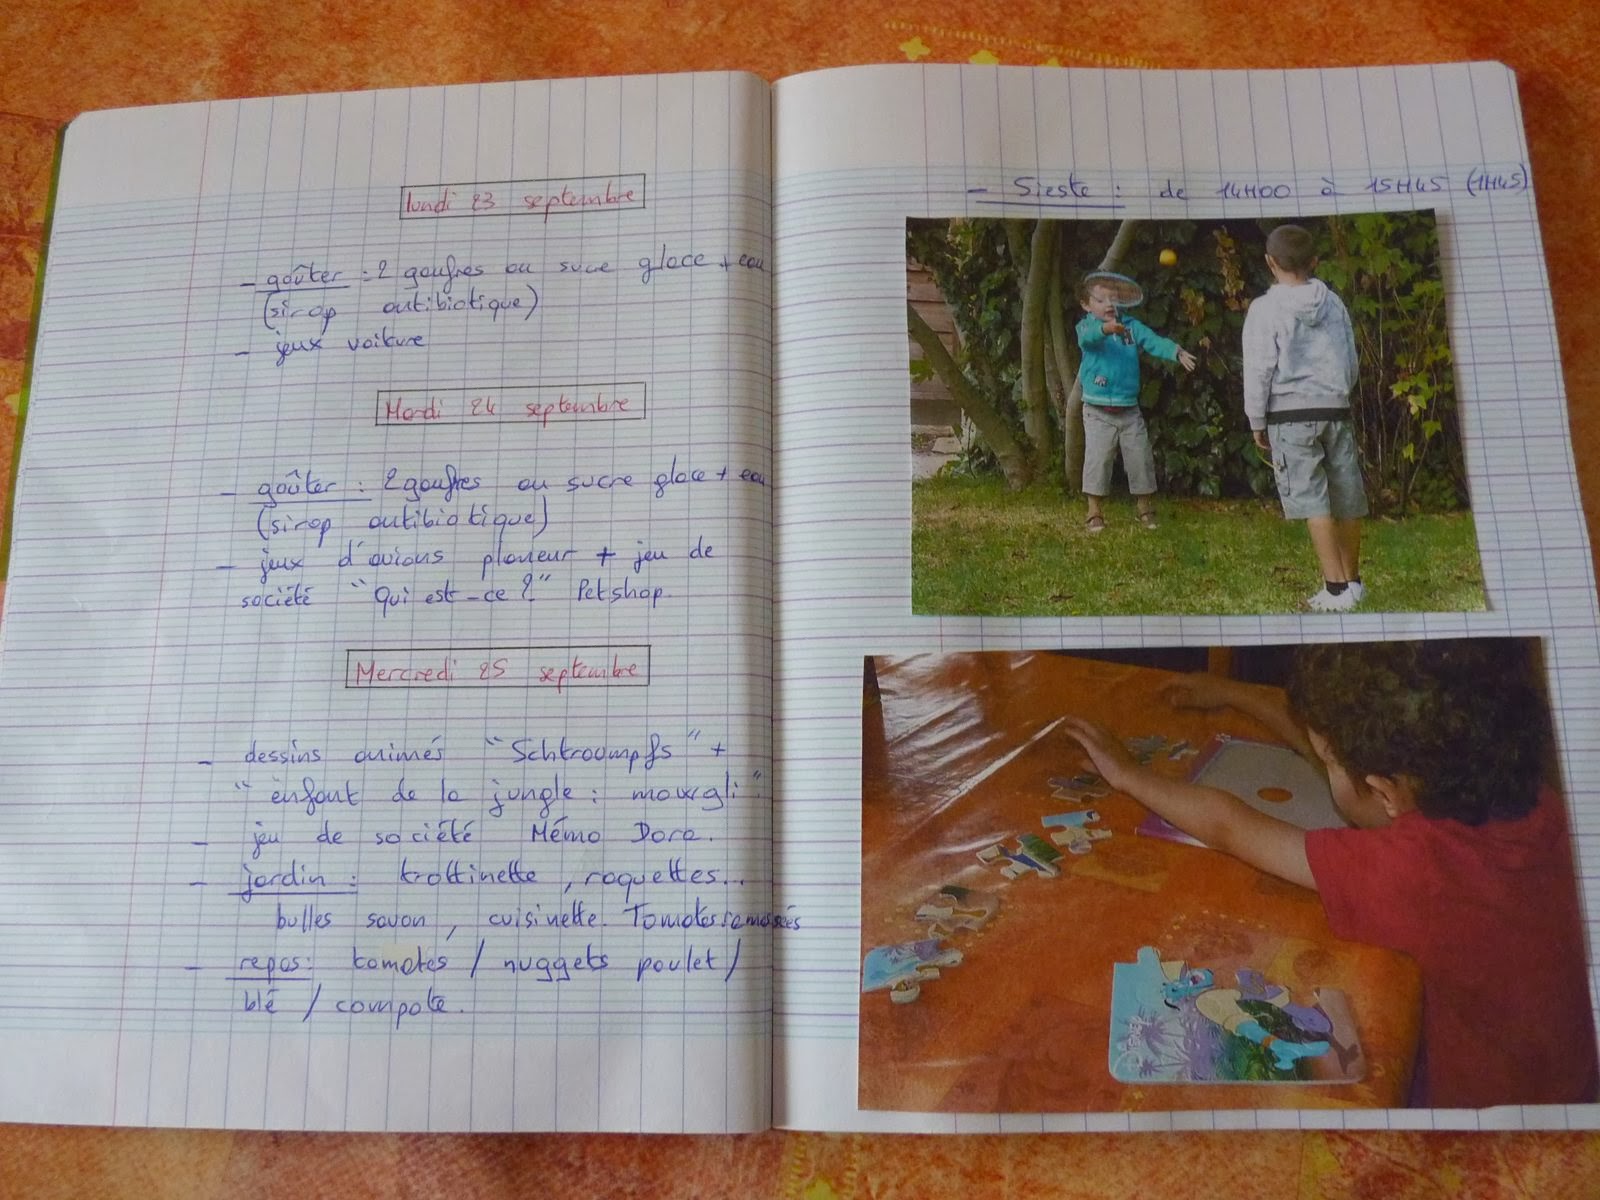 lundi 23 septembre
- goûter : 2 gaufres au sucre glace + eau
(sirop antibiotique)
- jeux voiture
Mardi 24 septembre
- goûter : 2 gaufres au sucre glace + eau
(sirop antibiotique)
- jeux d'avions planeur + jeu de
société "Qui est-ce ?" Petshop.
Mercredi 25 septembre
- dessins animés "Schtroumpfs" +
"enfant de la jungle : mowgli".
- jeu de société Mémo Dora.
- jardin : trottinette, raquettes...
bulles savon, cuisinette. Tomates ramassées
- repas : tomates / nuggets poulet /
blé / compote.
- Sieste : de 14H00 à 15H45 (1H45)